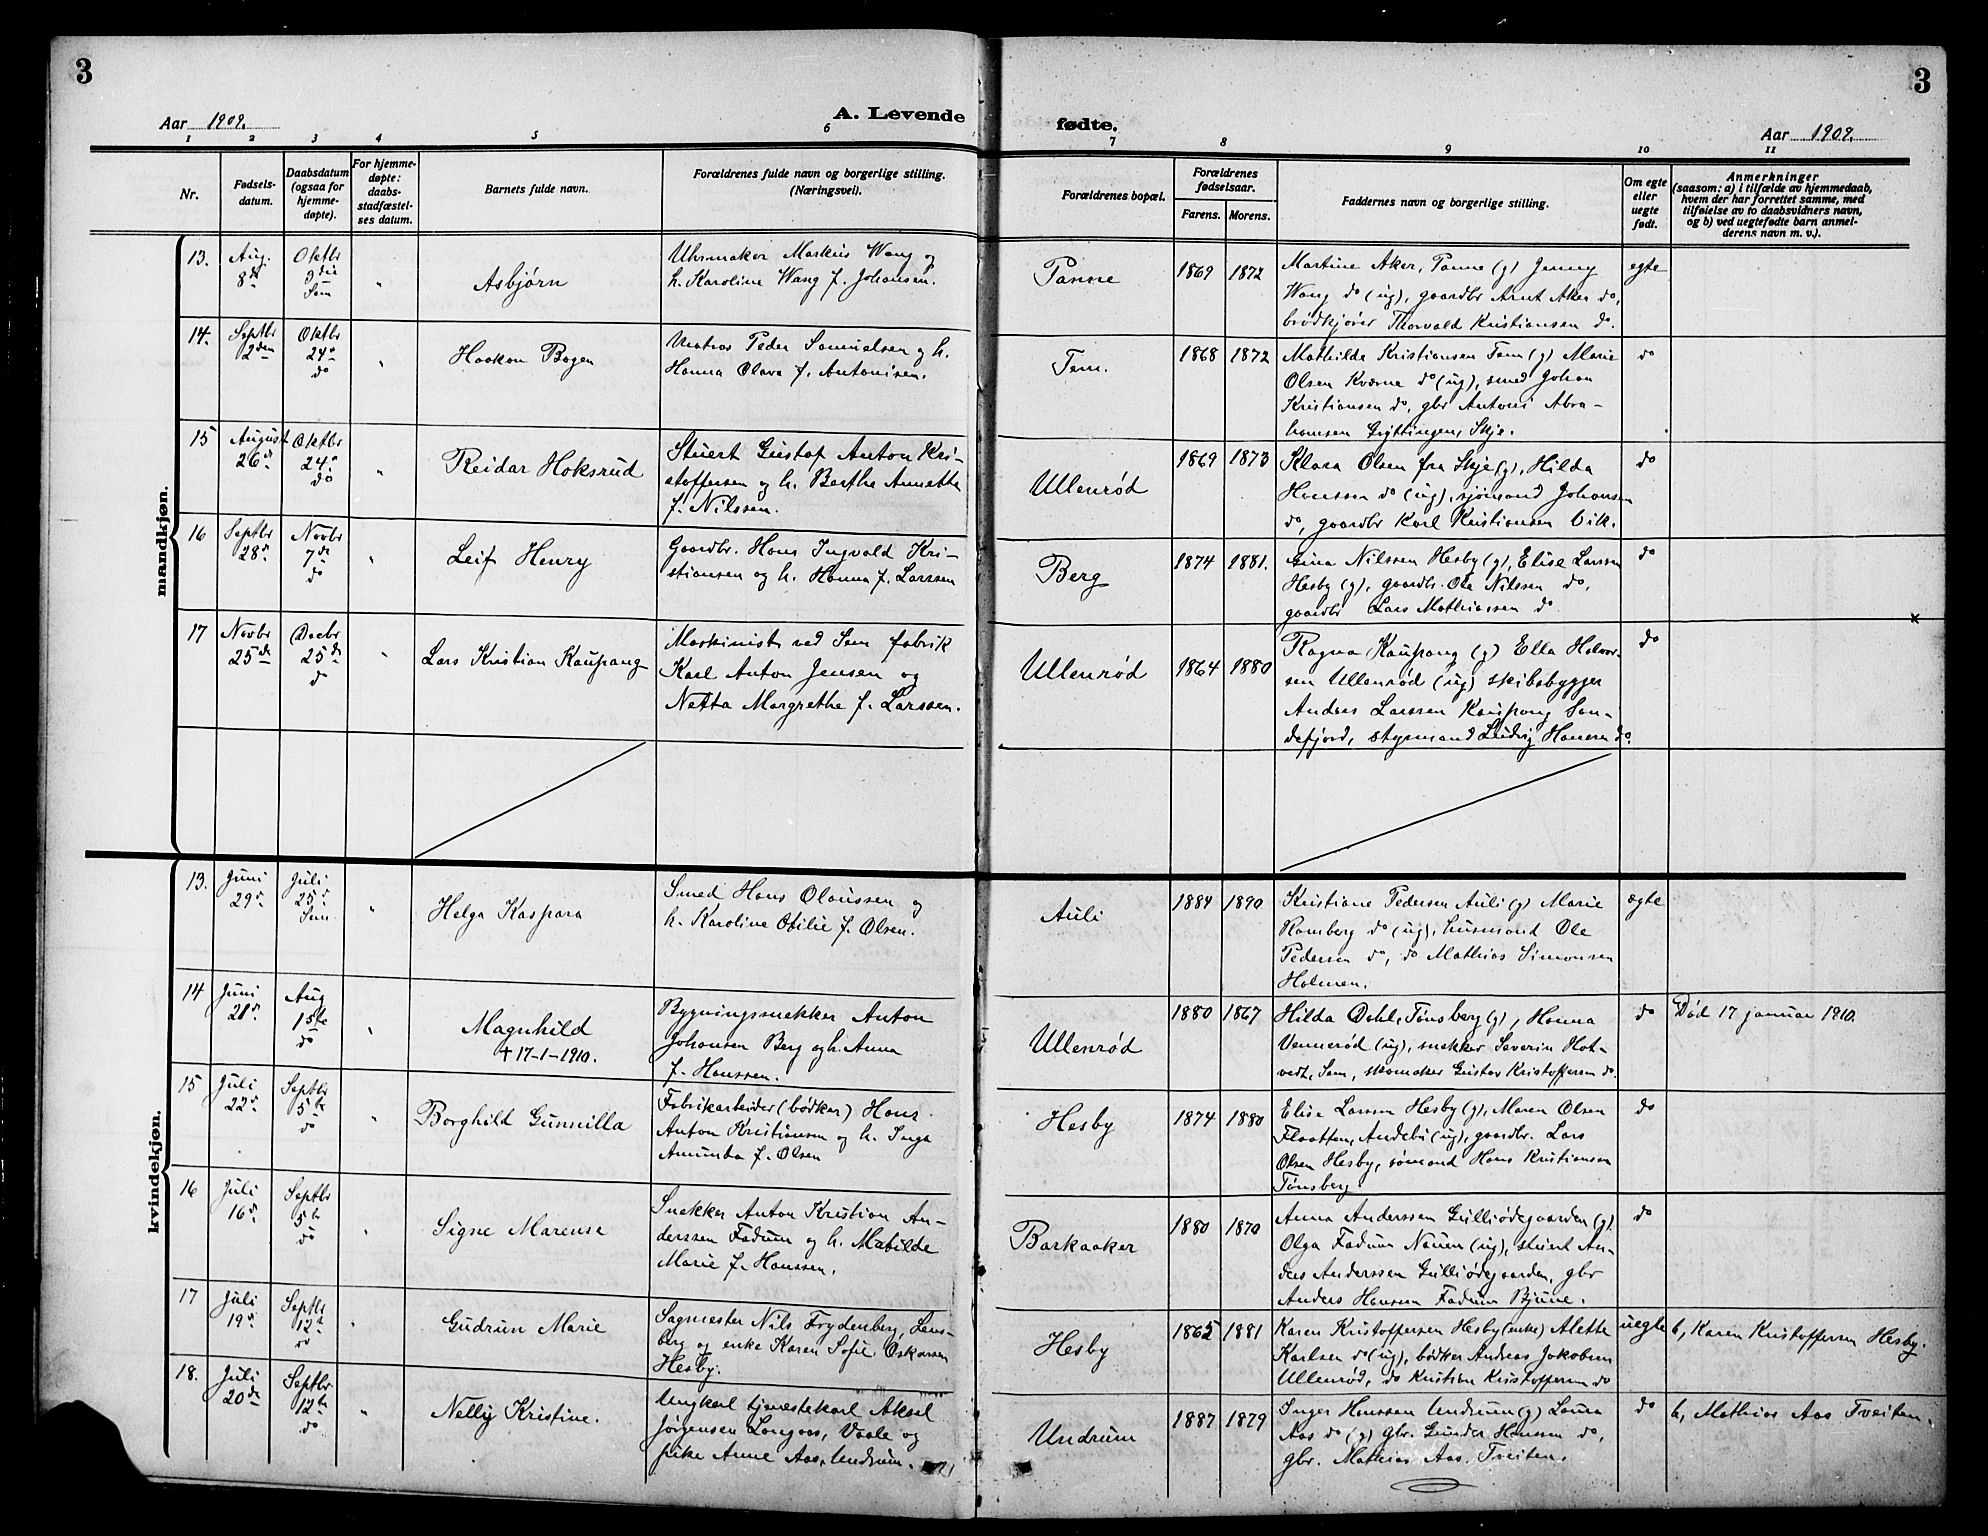 3
3
Aar 1909.
A. Levende
fødte.
Aar 1909.
1 2 3 4 5 6 7 8 9 10 11
Nr.
Fødsels-
datum.
Daabsdatum
(ogsaa for
hjemme-
døpte).
For hjemme-
døpte:
daabs-
stadfæstel-
ses datum.
Barnets fulde navn.
Forældrenes fulde navn og borgerlige stilling.
(Næringsvei).
Forældrenes bopæl.
Forældrenes
fødselsaar.
Farens. Morens.
Faddernes navn og borgerlige stilling.
Om egte
eller
uegte
født.
Anmerkninger
(saasom: a) i tilfælde av hjemmedaab,
hvem der har forrettet samme, med
tilføielse av to daabsvidners navn,
og b) ved uegtefødte barn anmel-
derens navn m. v.).
mandkjøn.
13.
Aug.
8de
Oktbr
3die
Sem
"
Asbjørn
Uhrmaker Markus Wang og
h. Karoline Wang f. Johansen.
Tanne
1869 1872
Martine Aker, Tanne (g) Jenny
Wang do (ug), gaardbr Arnt Aker do,
brødkjører Thorvald Kristiansen do.
egte
14.
Septbr
2den
Oktbr
24de
do
"
Haakon Bogen
Matros Peder Samuelsen og h.
Hanna Olava f. Antonisen.
Tem.
1868 1872
Mathilde Kristiansen Tem (g) Marie
Olsen Kværne do (ug), smed Johan
Kristiansen do, gbr Antoni Abra-
hamsen Gryttingen, Skje.
do
15
August
26de
Oktbr
24de
do
"
Reidar Hoksrud
Stuert Gustaf Anton Kri-
stoffersen og h. Berthe Annette
f. Nilssen.
Ullenrød
1869 1873
Klara Olsen fra Skje (g), Hilda
Hanssen do (ug), sjømand Johansen
do, gaardbr Karl Kristiansen Vik.
do
16
Septbr
28de
Novbr
7de
do
"
Leif Henry
Gaardbr. Hans Ingvald Kri-
stiansen og h. Hanna f. Larssen
Berg
1874 1881.
Gina Nilssen Hesby (g), Elise Larssen
Hesby (g), gaardbr. Ole Nilssen do,
gaardbr Lars Mathiassen do
do
17
Novbr
25de
Decbr
25de
do
"
Lars Kristian Kaupang
Maskinist ved Sem fabrik
Karl Anton Jensen og
Netta Margrethe f. Larssen.
Ullenrød
1864 1880
Ragna Kaupang (g) Ella Halvor-
sen Ullenrød (ug) skibsbygger
Anders Larssen Kaupang San-
defjord, styrmand Ludvig Hansen do.
do
x
kvindekjøn.
13.
Juni
29de
Juli
25de
Sem
"
Helga Kaspara
Smed Hans Olaussen og
h. Karoline Otilie f. Olsen.
Auli
1884 1890
Kristiane Pedersen Auli (g) Marie
Ramberg do (ug), husmand Ole
Pedersen do, do Mathias Simonsen
Holmen.
ægte
14
Juni
21de
Aug
15de
do
"
Magnhild
+ 17-1-1910.
Bygningssnekker Anton
Johansen Berg og h. Anna
f. Hanssen.
Ullenrød
1880 1867
Hilda Dahl, Tønsberg (g), Hanna
Vennerød (ug), snekker Severin Hot-
vedt, Sem, skomaker Gustav Kristoffersen do.
do
Død 17 januar 1910.
15
Juli
22de
Septbr
5te
do
"
Borghild Gunnilla
Fabrikarbeider (bødker) Hans
Anton Kristiansen og h. Inga
Amunda f. Olsen
Hesby
1874 1880
Elise Larssen Hesby (g), Maren Olsen
Flaatten, Andebu (ug), gaardbr. Lars
Olsen Hesby, sømand Hans Kristiansen
Tønsberg.
do
16
Juli
16de
Septbr
5te
do
"
Signe Marense
Snekker Anton Kristian An-
derssen Fadum og h. Mabilde
Marie f. Hanssen.
Barkaaker
1880 1870
Anna Anderssen Gulliødegaarden (g).
Olga Fadum Nauen (ug), stuert An-
ders Anderssen Gulliødegaarden, gbr
Anders Hansen Fadum Bjune.
do
17
Juli
19de
Septbr
12te
do
"
Gudrun Marie
Sagmester Nils Frydenberg, Lens-
berg og enke Karen Sofie Oskarsen
Hesby.
Hesby
1865 1881
Karen Kristoffersen Hesby (enke) Alette
Karlsen do (ug), bødker Andreas Jakobsen
Ullenrød, do Kristian Kristoffersen do
uegte
b, Karen Kristoffersen Hesby.
18.
Juli
20de
Septbr.
12te
do
"
Nelly Kristine.
Ungkarl tjenestekarl Aksel
Jørgensen Langaas, Vaale og
pike Anne Aas, Undrum.
Undrum
1887 1879
Inger Hanssen Undrum (g) Laura
Aas do (g) gbr. Gunder Hansen do,
gbr. Mathias Aas Tveiten.
do
b, Mathias Aas Tveiten.